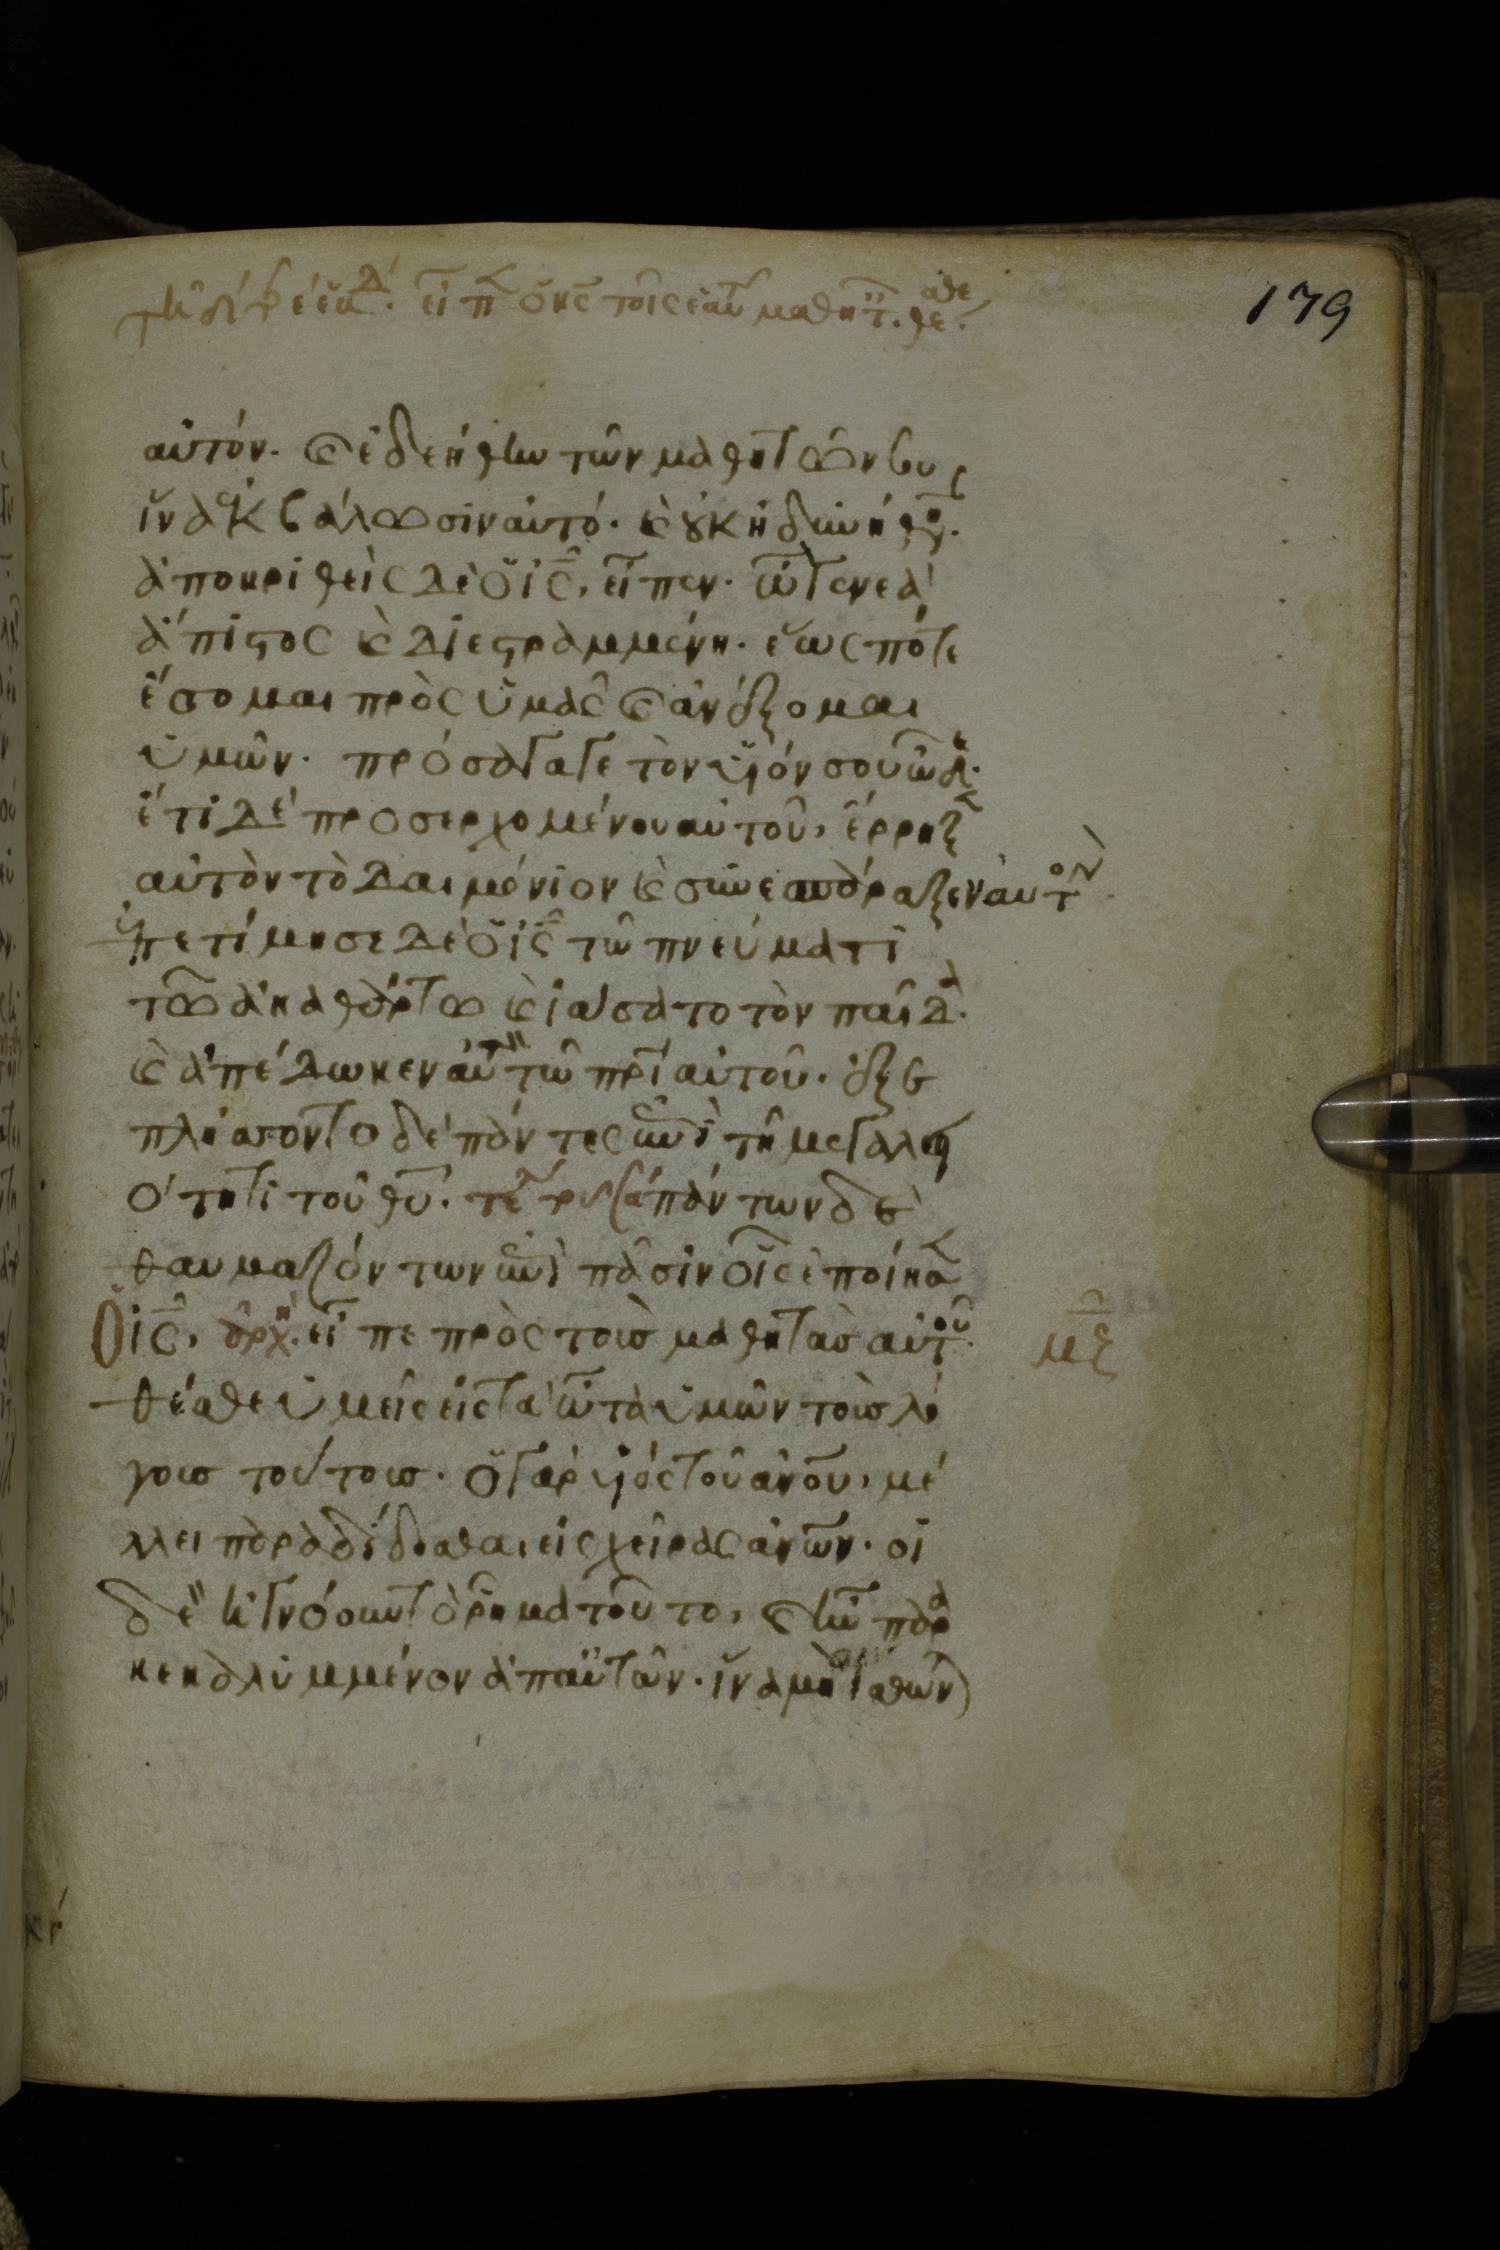 εἶπ ὁ κς τοῖς ἑαυ μαθητ. θέσθε
179
αὐτόν. καὶ ἐδεήθην τῶν μαθητῶν σου
ἵνα ἐκβάλωσιν αὐτό. καὶ οὐκ ἠδυνήθησ.
ἀποκριθεὶς δὲ ὁ ις, εἶπεν. ὦ γενεὰ
ἄπιστος καὶ διεστραμμένη. ἕως πότε
ἔσομαι πρὸς ὑμᾶς καὶ ἀνέξομαι
ὑμῶν. προσάγαγε τὸν υἱόν σου ὧδε.
ἔτι δὲ προσερχομένου αὐτοῦ, ἔρρηξ
αὐτὸν τὸ δαιμόνιον καὶ συνεσπάραξεν αὐτόν
ἐπετίμησε δὲ ὁ ις τῶ πνεύματι
τῶ ἀκαθάρτω καὶ ἰάσατο τὸν παῖδα.
καὶ ἀπέδωκεν αὐτὸν τῶ πρι αὐτοῦ. ἐξε
πλήσσοντο δὲ πάντες ἐπὶ τῆ μεγαλει
ότητι τοῦ θυ. τε πάντων δὲ
θαυμαζόντων ἐπὶ πᾶσιν οἷς ἐποίησεν
ὁ ις, ἀρχὴ. εἶπε πρὸς τοὺς μαθητὰς αὐτοῦ.
θέσθε ὑμεῖς εἰς τὰ ὦτα ὑμῶν τοὺς λό
γους τούτους. ὁ γὰρ υἱὸς τοῦ ανου, μέ
λλει παραδίδοσθαι εἰς χεῖρας ανων. οἱ
δὲ ἠγνόουν τὸ ῥῆμα τοῦτο, καὶ ἦν παρα
κεκαλυμμένον ἀπ αὐτῶν. ἵνα μὴ αἴσθων